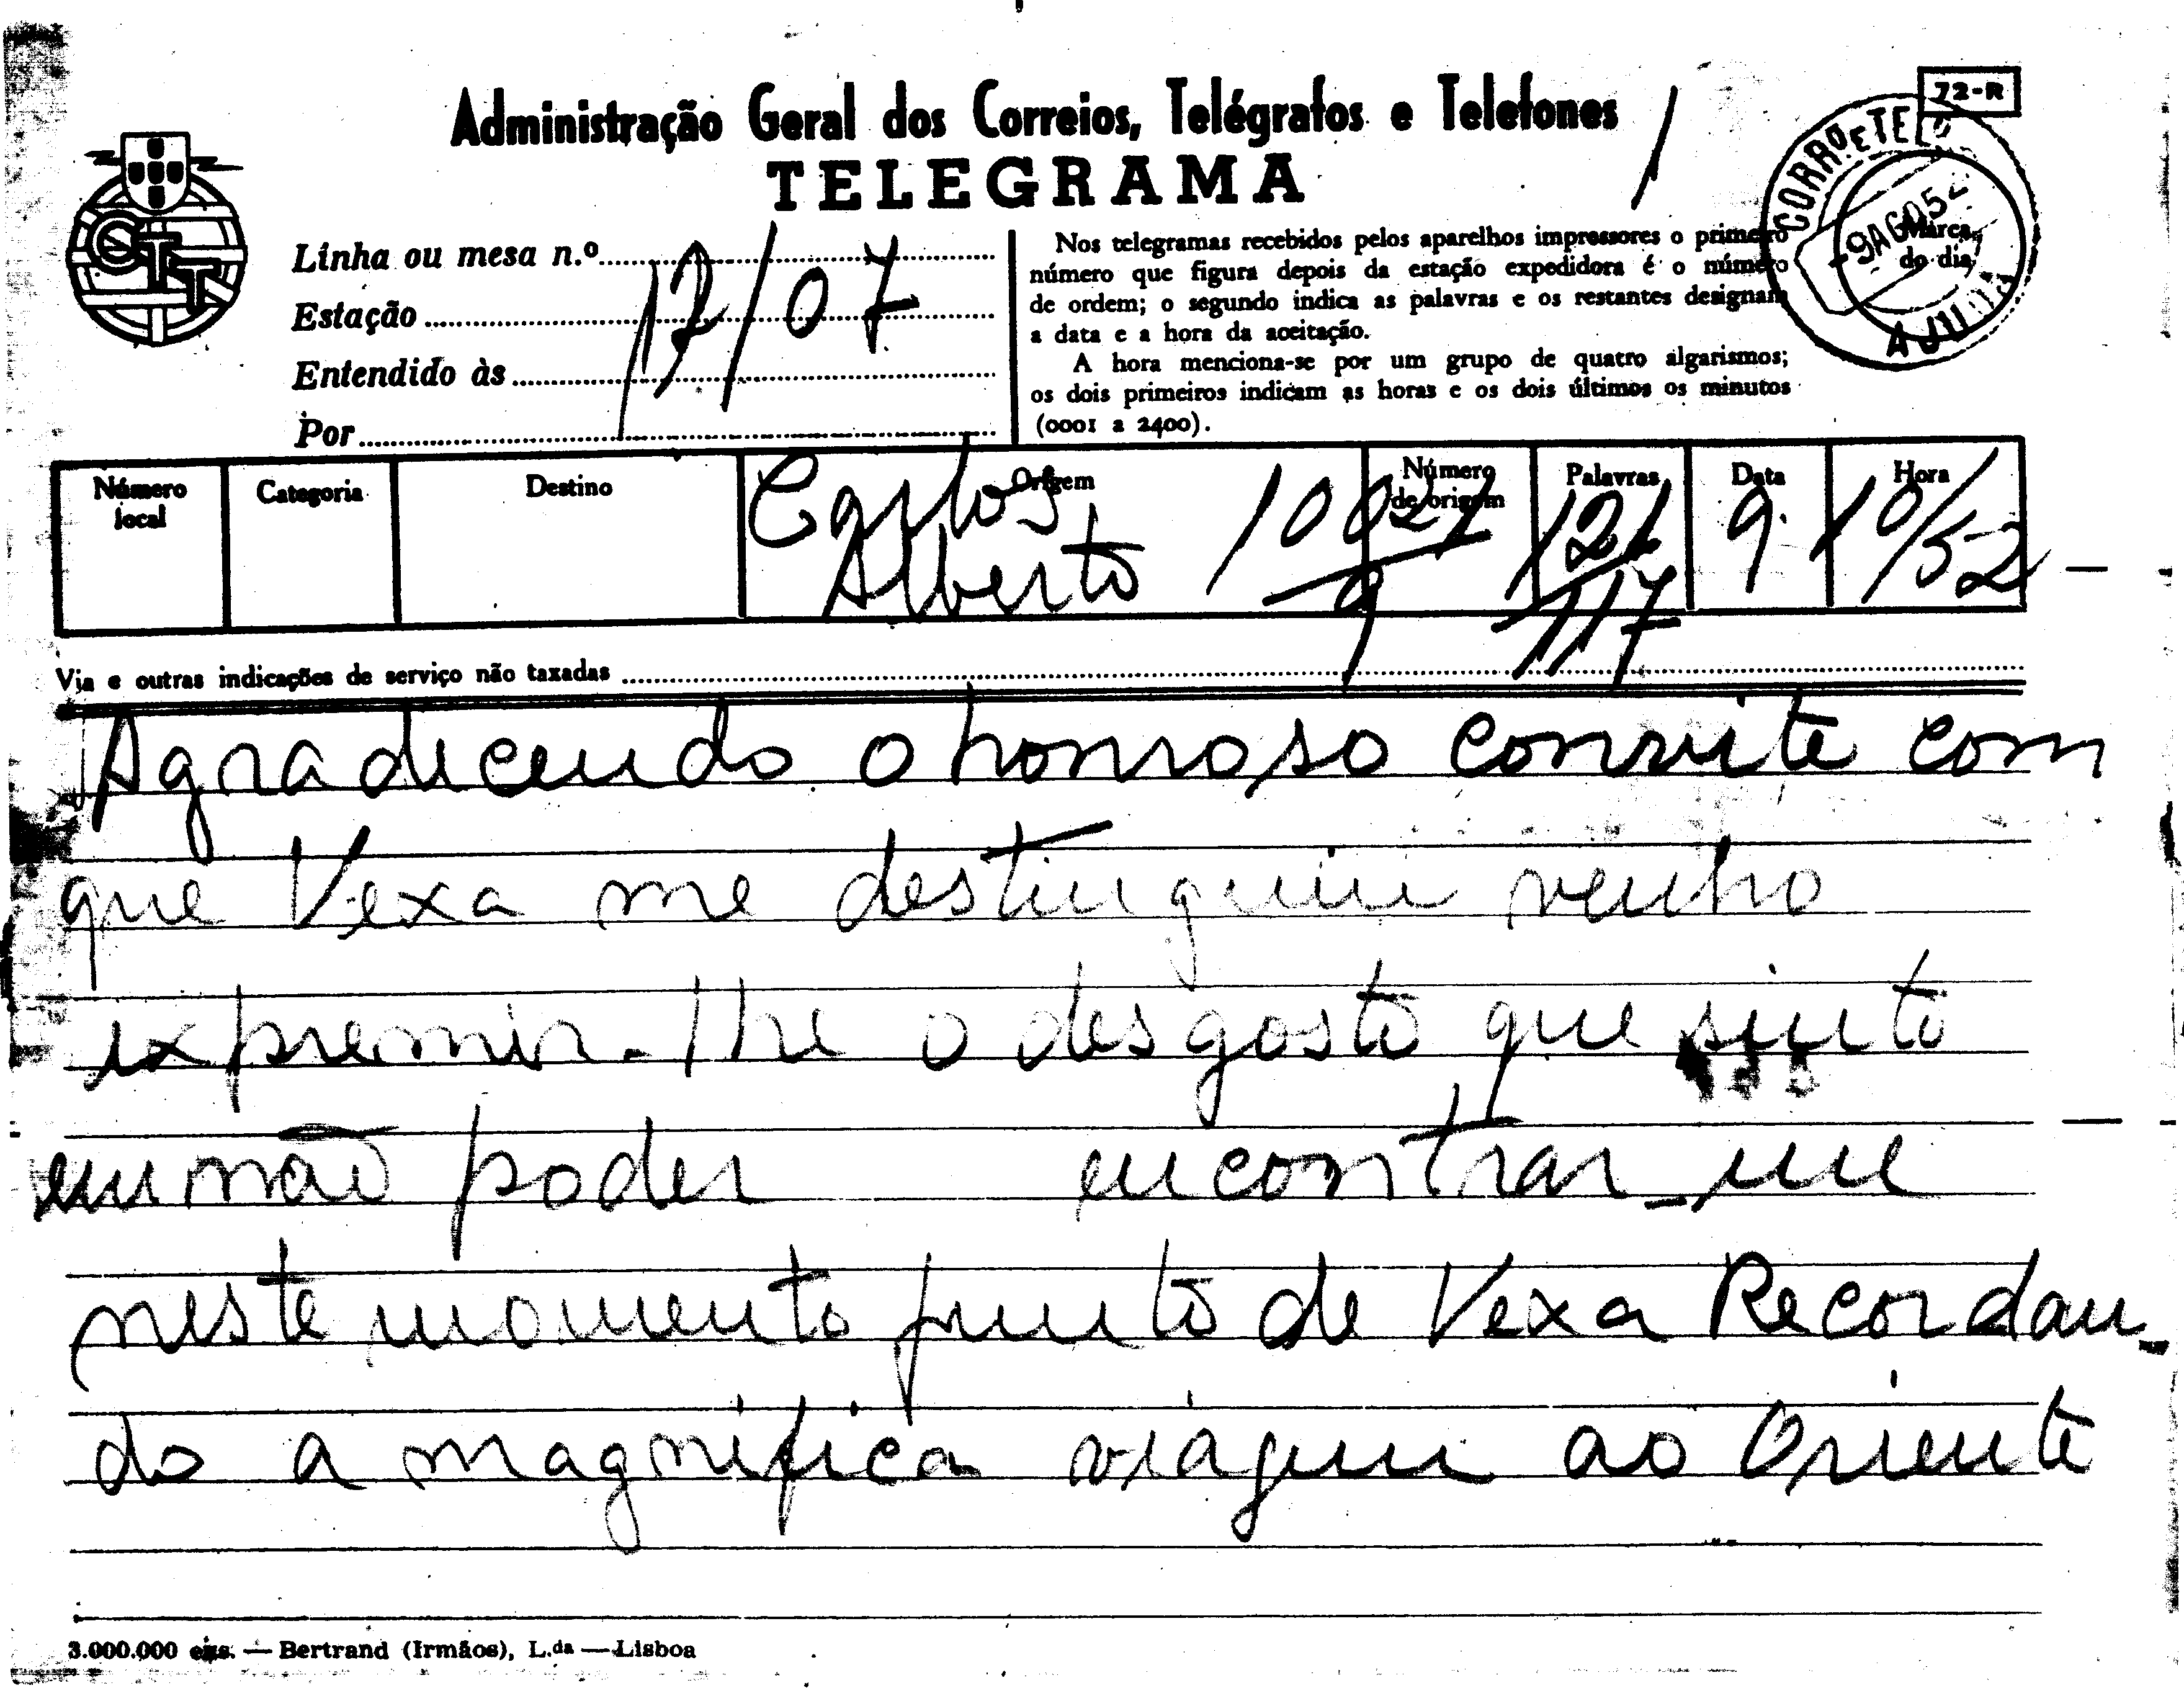 72-R
Administração Geral dos Correios, Telégrafos e Telefones
TELEGRAMA
CORRO E TEL
9 AGO 52
AJUDA
Marca
do dia
CTT
Linha ou mesa n.º
Estação
Entendido às
Por
12/07
Nos telegramas recebidos pelos aparelhos impressores o primeiro
número que figura depois da estação expedidora é o número
de ordem; o segundo indica as palavras e os restantes designam
a data e a hora da aceitação.
A hora menciona-se por um grupo de quatro algarismos;
os dois primeiros indicam as horas e os dois últimos os minutos
(0001 a 2400).
Número local Categoria Destino Origem Número de origem Palavras Data Hora
Carlos 121 9 10/52
Alberto 9 117
Via e outras indicações de serviço não taxadas
Agradecendo o honroso convite com
que Vexa me destinguiu venho
expremir-lhe o desgosto que sinto
em não poder encontrar-me
neste momento junto de Vexa Recordan-
do a magnifica viágem ao Oriente
3.000.000 exs. — Bertrand (Irmãos), L.da — Lisboa